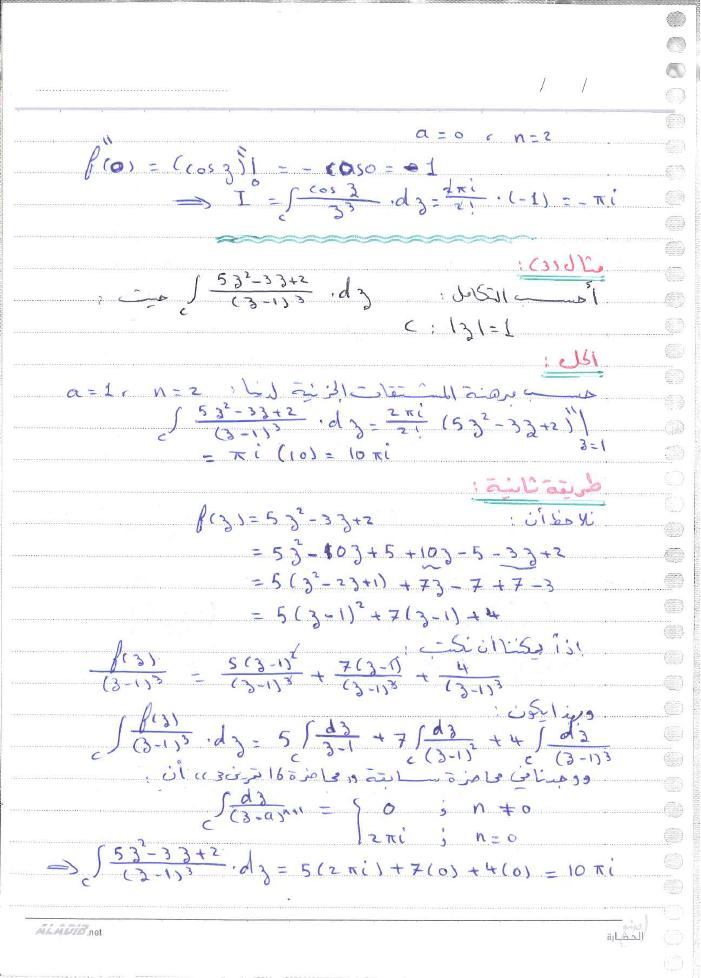 / /
a = 0 , n = 2
f''(0) = (cos z)''|₀ = - cos 0 = -1
⇒ I = ∫_c cos z / z³ · dz = 2πi / 2! · (-1) = -πi
مثال (2):
أحسب التكامل: ∫_c (5z² - 3z + 2) / (z-1)³ · dz حيث:
c : |z| = 1
الحل:
حسب برهنة المشتقات الجزئية لدينا: a = 1 , n = 2
∫_c (5z² - 3z + 2) / (z-1)³ · dz = 2πi / 2! (5z² - 3z + 2)''|z=1
= πi (10) = 10πi
طريقة ثانية:
نلاحظ أن: f(z) = 5z² - 3z + 2
= 5z² - 10z + 5 + 10z - 5 - 3z + 2
= 5(z² - 2z + 1) + 7z - 7 + 7 - 3
= 5(z-1)² + 7(z-1) + 4
إذاً يمكننا أن نكتب:
f(z) / (z-1)³ = 5(z-1)² / (z-1)³ + 7(z-1) / (z-1)³ + 4 / (z-1)³
وبهذا يكون:
∫_c f(z) / (z-1)³ · dz = 5 ∫_c dz / z-1 + 7 ∫_c dz / (z-1)² + 4 ∫_c dz / (z-1)³
ووجدنا في محاضرة سابقة "محاضرة 16 أن:
∫_c dz / (z-a)ⁿ⁺¹ = { 0 ; n ≠ 0
2πi ; n = 0
⇒ ∫_c (5z² - 3z + 2) / (z-1)³ · dz = 5(2πi) + 7(0) + 4(0) = 10πi
ALADIB.net
الحضارة